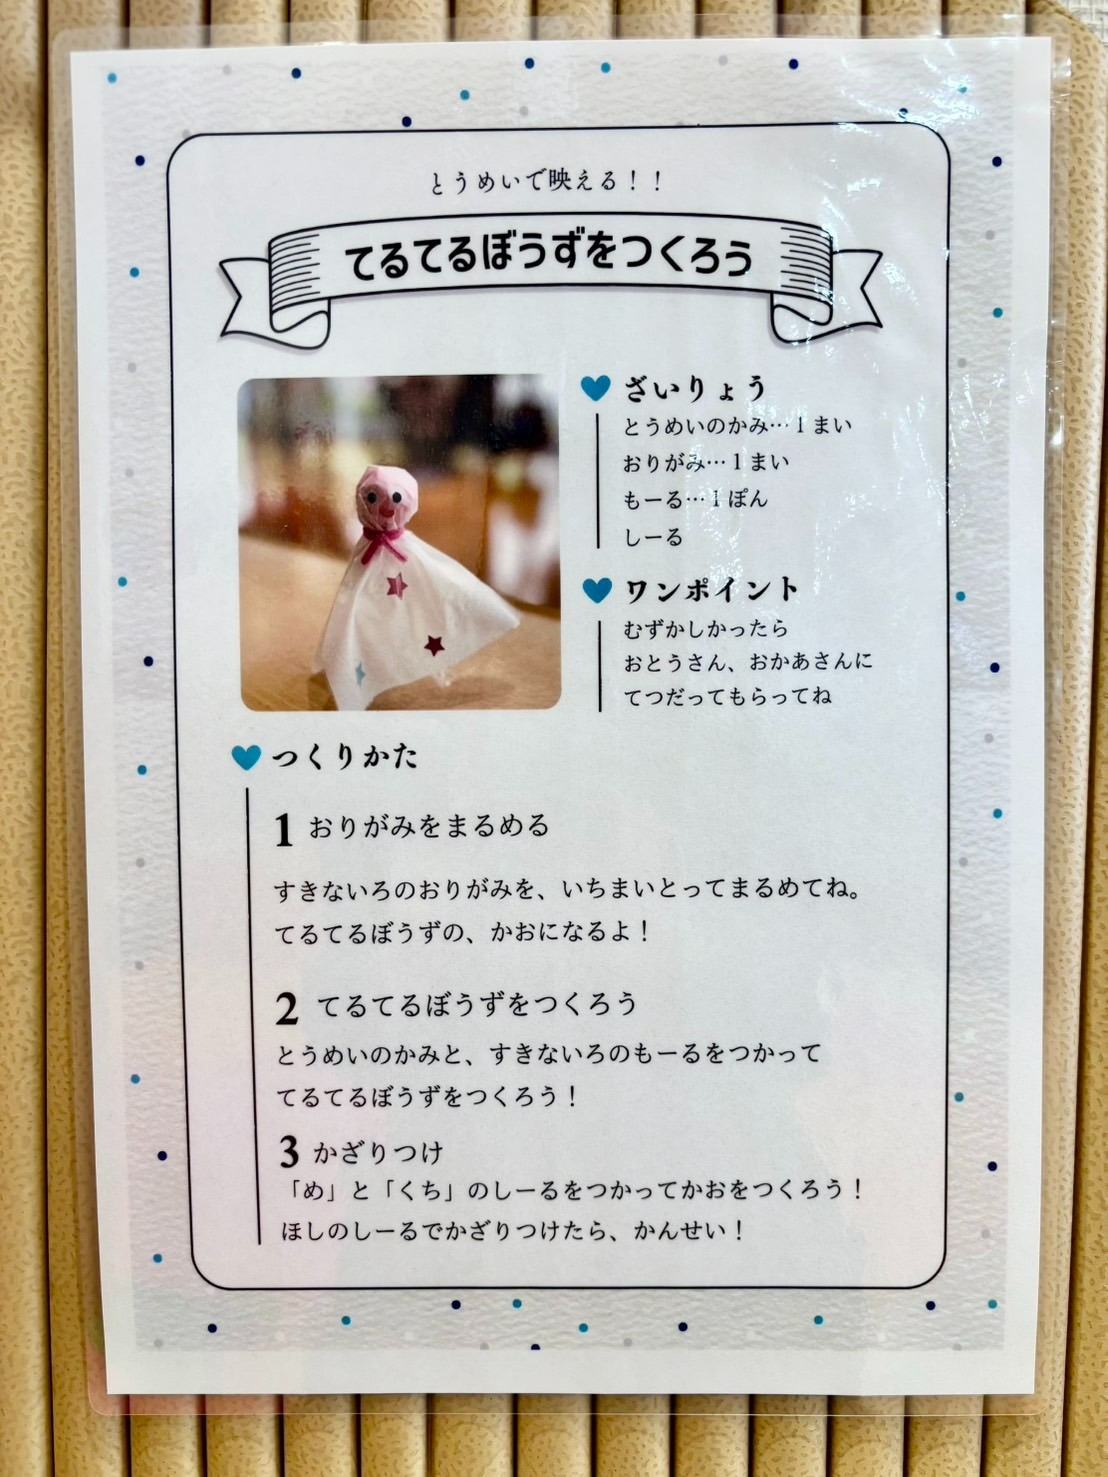 とうめいで映える！！
てるてるぼうずをつくろう
ざいりょう
とうめいのかみ…1まい
おりがみ…1まい
もーる…1ぽん
しーる
ワンポイント
むずかしかったら
おとうさん、おかあさんに
てつだってもらってね
つくりかた
1 おりがみをまるめる
すきないろのおりがみを、いちまいとってまるめてね。
てるてるぼうずの、かおになるよ！
2 てるてるぼうずをつくろう
とうめいのかみと、すきないろのもーるをつかって
てるてるぼうずをつくろう！
3 かざりつけ
「め」と「くち」のしーるをつかってかおをつくろう！
ほしのしーるでかざりつけたら、かんせい！